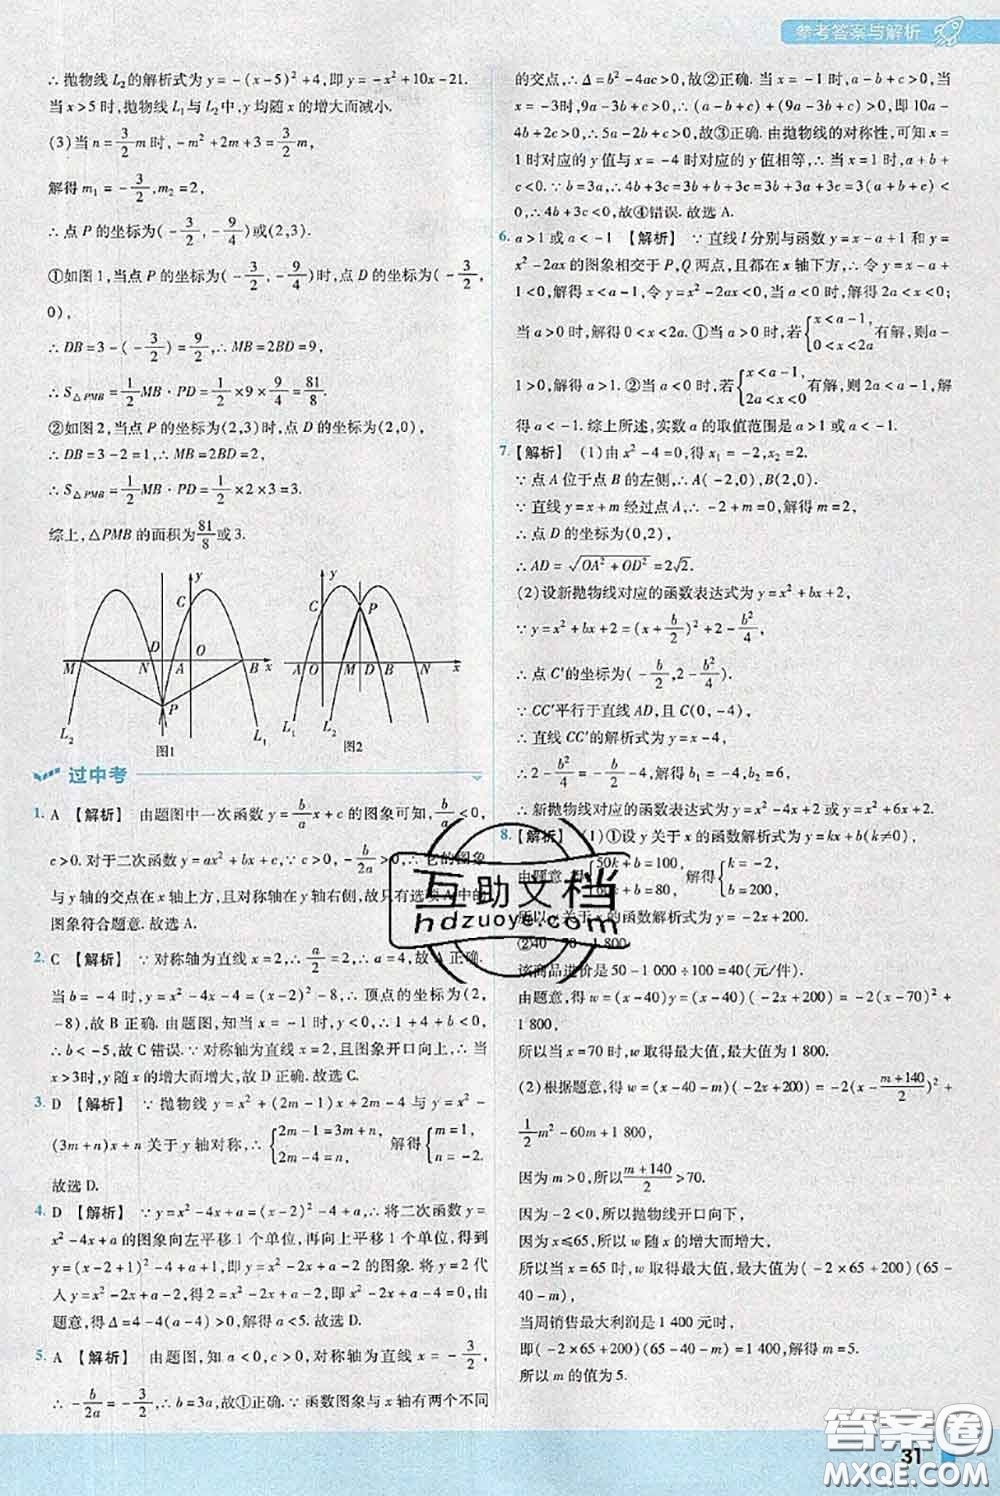 参考答案与解析
∴抛物线 L₂的解析式为 y = -(x-5)²+4,即 y = -x²+10x-21.
当 x>5 时,抛物线 L₁与 L₂中,y 均随 x 的增大而减小.
(3)当 n = 3/2 m 时, -m²+2m+3 = 3/2 m,
解得 m₁ = -3/2, m₂ = 2,
∴点 P 的坐标为(-3/2, -9/4)或(2,3).
①如图 1,当点 P 的坐标为(-3/2, -9/4)时,点 D 的坐标为(-3/2,
0),
∴DB = 3-(-3/2) = 9/2, ∴MB = 2BD = 9,
∴S△PMB = 1/2 MB·PD = 1/2×9×9/4 = 81/8.
②如图 2,当点 P 的坐标为(2,3)时,点 D 的坐标为(2,0),
∴DB = 3-2 = 1, ∴MB = 2BD = 2,
∴S△PMB = 1/2 MB·PD = 1/2×2×3 = 3.
综上,△PMB 的面积为 81/8 或 3.
y
C
D O
M N A B x
P
L₂ L₁
图1
y
C P
A O M D B N x
L₁ L₂
图2
过中考
1. A 【解析】 由题图中一次函数 y = b/a x+c 的图象可知, b/a <0,
c>0. 对于二次函数 y = ax²+bx+c, ∵c>0, -b/2a >0, ∴它的图象
与 y 轴的交点在 x 轴上方,且对称轴在 y 轴右侧,故只有选项 A 中的
图象符合题意. 故选 A.
2. C 【解析】 ∵对称轴为直线 x = 2, ∴ a/2 = 2, ∴a = 4,故 A 正确.
当 b = -4 时, y = x²-4x-4 = (x-2)²-8, ∴顶点的坐标为(2,
-8),故 B 正确. 由题图,知当 x = -1 时, y<0, ∴1+4+b<0,
∴b<-5,故 C 错误. ∵对称轴为直线 x = 2,且图象开口向上, ∴当
x>3时, y 随 x 的增大而增大,故 D 正确. 故选 C.
3. D 【解析】 ∵抛物线 y = x²+(2m-1)x+2m-4 与 y = x²-
(3m+n)x+n 关于 y 轴对称, ∴ {2m-1=3m+n, 2m-4=n, 解得 {m=1, n=-2.
故选 D.
4. D 【解析】 ∵y = x²-4x+a = (x-2)²-4+a, ∴将二次函数 y =
x²-4x+a 的图象向左平移 1 个单位,再向上平移 1 个单位,得到
y = (x-2+1)²-4+a+1,即 y = x²-2x+a-2 的图象. 将 y = 2 代
入 y = x²-2x+a-2,得 2 = x²-2x+a-2,即 x²-2x+a-4 = 0,由
题意,得 Δ = 4-4(a-4)>0,解得 a<5. 故选 D.
5. A 【解析】 由题图,知 a<0, c>0,对称轴为直线 x = -3/2,
∴ -b/2a = -3/2, ∴b = 3a,故①正确. ∵函数图象与 x 轴有两个不同
的交点, ∴Δ = b²-4ac>0,故②正确. 当 x = -1 时, a-b+c>0,当
x = -3时, 9a-3b+c>0, ∴(a-b+c)+(9a-3b+c)>0,即 10a-
4b+2c>0, ∴5a-2b+c>0,故③正确. 由抛物线的对称性,可知 x =
1 时对应的 y 值与 x = -4 时对应的 y 值相等, ∴当 x = 1 时, a+b+
c<0. ∵b = 3a, ∴4b+3c = 3b+b+3c = 3b+3a+3c = 3(a+b+c)<
0, ∴4b+3c<0,故④错误. 故选 A.
6. a>1 或 a<-1 【解析】 ∵直线 l 分别与函数 y = x-a+1 和 y =
x²-2ax 的图象相交于 P,Q 两点,且都在 x 轴下方, ∴令 y = x-a+
1<0,解得 x<a-1. 令 y = x²-2ax<0,当 a>0 时,解得 0<x<2a;
当 a<0 时,解得 2a<x<0. ①当 a>0 时,若 {x<a-1, 0<x<2a 有解,则 a-
1>0,解得 a>1. ②当 a<0 时,若 {x<a-1, 2a<x<0 有解,则 2a<a-1,解
得 a<-1. 综上所述,实数 a 的取值范围是 a>1 或 a<-1.
7. 【解析】 (1)由 x²-4 = 0,得 x₁ = -2, x₂ = 2.
∵点 A 位于点 B 的左侧, ∴A(-2,0), B(2,0).
∵直线 y = x+m 经过点 A, ∴-2+m = 0, ∴m = 2,
∴点 D 的坐标为(0,2),
∴AD = √(OA²+OD²) = 2√2.
(2)设新抛物线对应的函数表达式为 y = x²+bx+2,
∵y = x²+bx+2 = (x+b/2)²+2-b²/4,
∴点 C′的坐标为(-b/2, 2-b²/4).
∵CC′平行于直线 AD,且 C(0,-4),
∴直线 CC′的解析式为 y = x-4,
∴2-b²/4 = -b/2-4,解得 b₁ = -4, b₂ = 6,
∴新抛物线对应的函数表达式为 y = x²-4x+2 或 y = x²+6x+2.
8. 【解析】 (1)①设 y 关于 x 的函数解析式为 y = kx+b(k≠0),
由题意,得 50k+b=100, k+b=80, 解得 {k=-2, b=200,
所以 y 关于 x 的函数解析式为 y = -2x+200.
②40 70 1 800
该商品进价是 50-1 000÷100 = 40(元/件).
由题意,得 w = (x-40)y = (x-40)(-2x+200) = -2(x-70)²+
1 800,
所以当 x = 70 时, w 取得最大值,最大值为 1 800.
(2)根据题意,得 w = (x-40-m)(-2x+200) = -2(x-(m+140)/2)²+
1/2 m²-60m+1 800,
因为 m>0,所以 (m+140)/2 >70.
因为 -2<0,所以抛物线开口向下,
因为 x≤65,所以 w 随 x 的增大而增大,
所以当 x = 65 时, w 取得最大值,最大值为(-2×65+200)(65-
40-m),
当周销售最大利润是 1 400 元时,
即(-2×65+200)(65-40-m) = 1 400,解得 m = 5.
所以 m 的值为 5.
互助文档
hdzuoye.com
答案圈
MXQE.COM
31